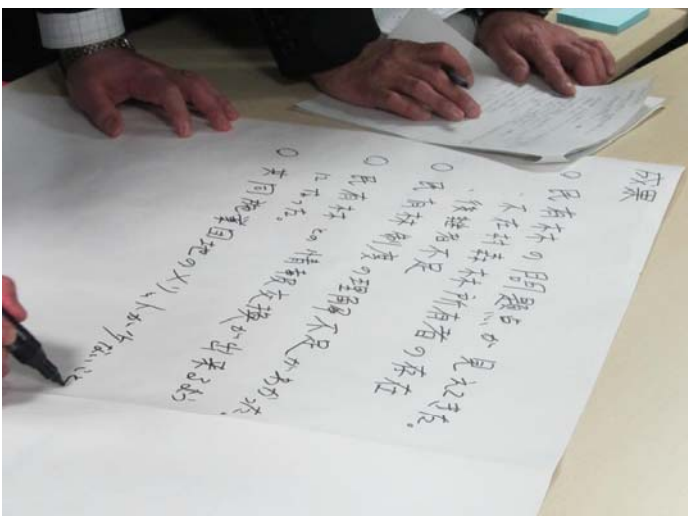 成果
○ 民有林の問題点が見えてきた。
・不在村森林所有者の存在
・後継者不足
○ 民有林制度の理解不足がわかった。
○ 民有林との情報交換が出来るよう
になった。
○ 共同施業団地のメリットが少ないこと